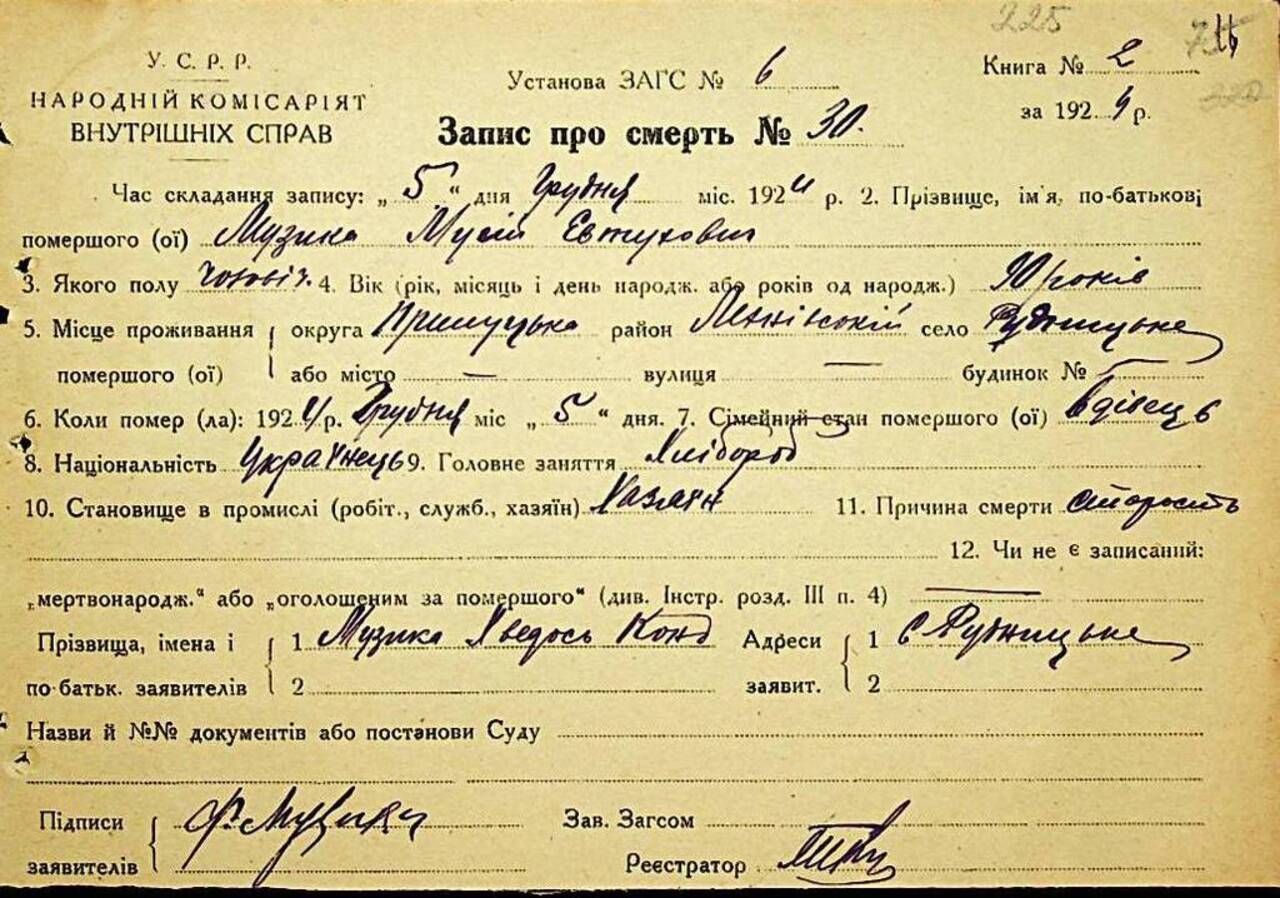 225
У. С. Р. Р.
НАРОДНІЙ КОМІСАРІЯТ
ВНУТРІШНІХ СПРАВ
Установа ЗАГС № 6
Книга № 2
за 1924 р.
Запис про смерть № 30.
Час складання запису: „ 5 “ дня Грудня міс. 1924 р. 2. Прізвище, ім'я, по-батькові
помершого (ої) Музика Мусій Евтухович
3. Якого полу чоловіч. 4. Вік (рік, місяць і день народж. або років од народж.) 90 років
5. Місце проживання { округа Прилуцька район село Рудницьке
помершого (ої) або місто — вулиця — будинок № —
6. Коли помер (ла): 1924 р. Грудня міс „ 5 “ дня. 7. Сімейний стан помершого (ої) вдівець
8. Національність Українець 9. Головне заняття Хлібороб
10. Становище в промислі (робіт., служб., хазяїн) Хазяїн 11. Причина смерти старость
12. Чи не є записаний:
„мертвонародж.“ або „оголошеним за помершого“ (див. Інстр. розд. III п. 4) —
Прізвища, імена і { 1 Музика Хведось Конд Адреси { 1 с Рудницьке
по-батьк. заявителів 2 заявит. 2
Назви й №№ документів або постанови Суду
Підписи { Ф. Музика Зав. Загсом
заявителів Реєстратор